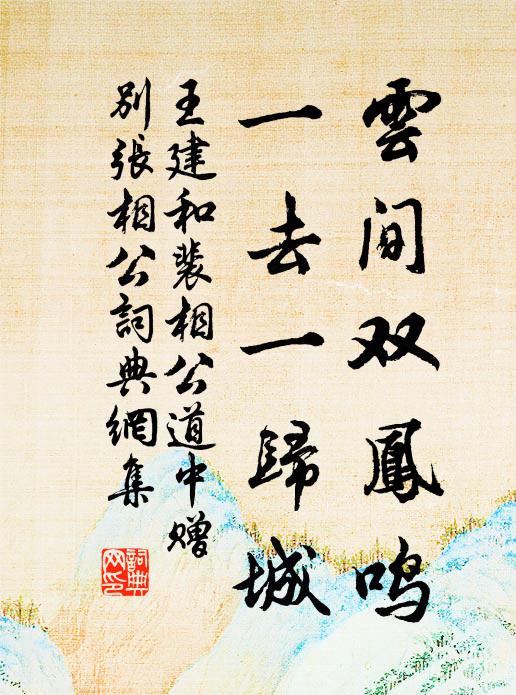 雲间双鳳鸣
一去一歸城
王建和裴相公道中赠
别張相公詞典網集
詞典
网印